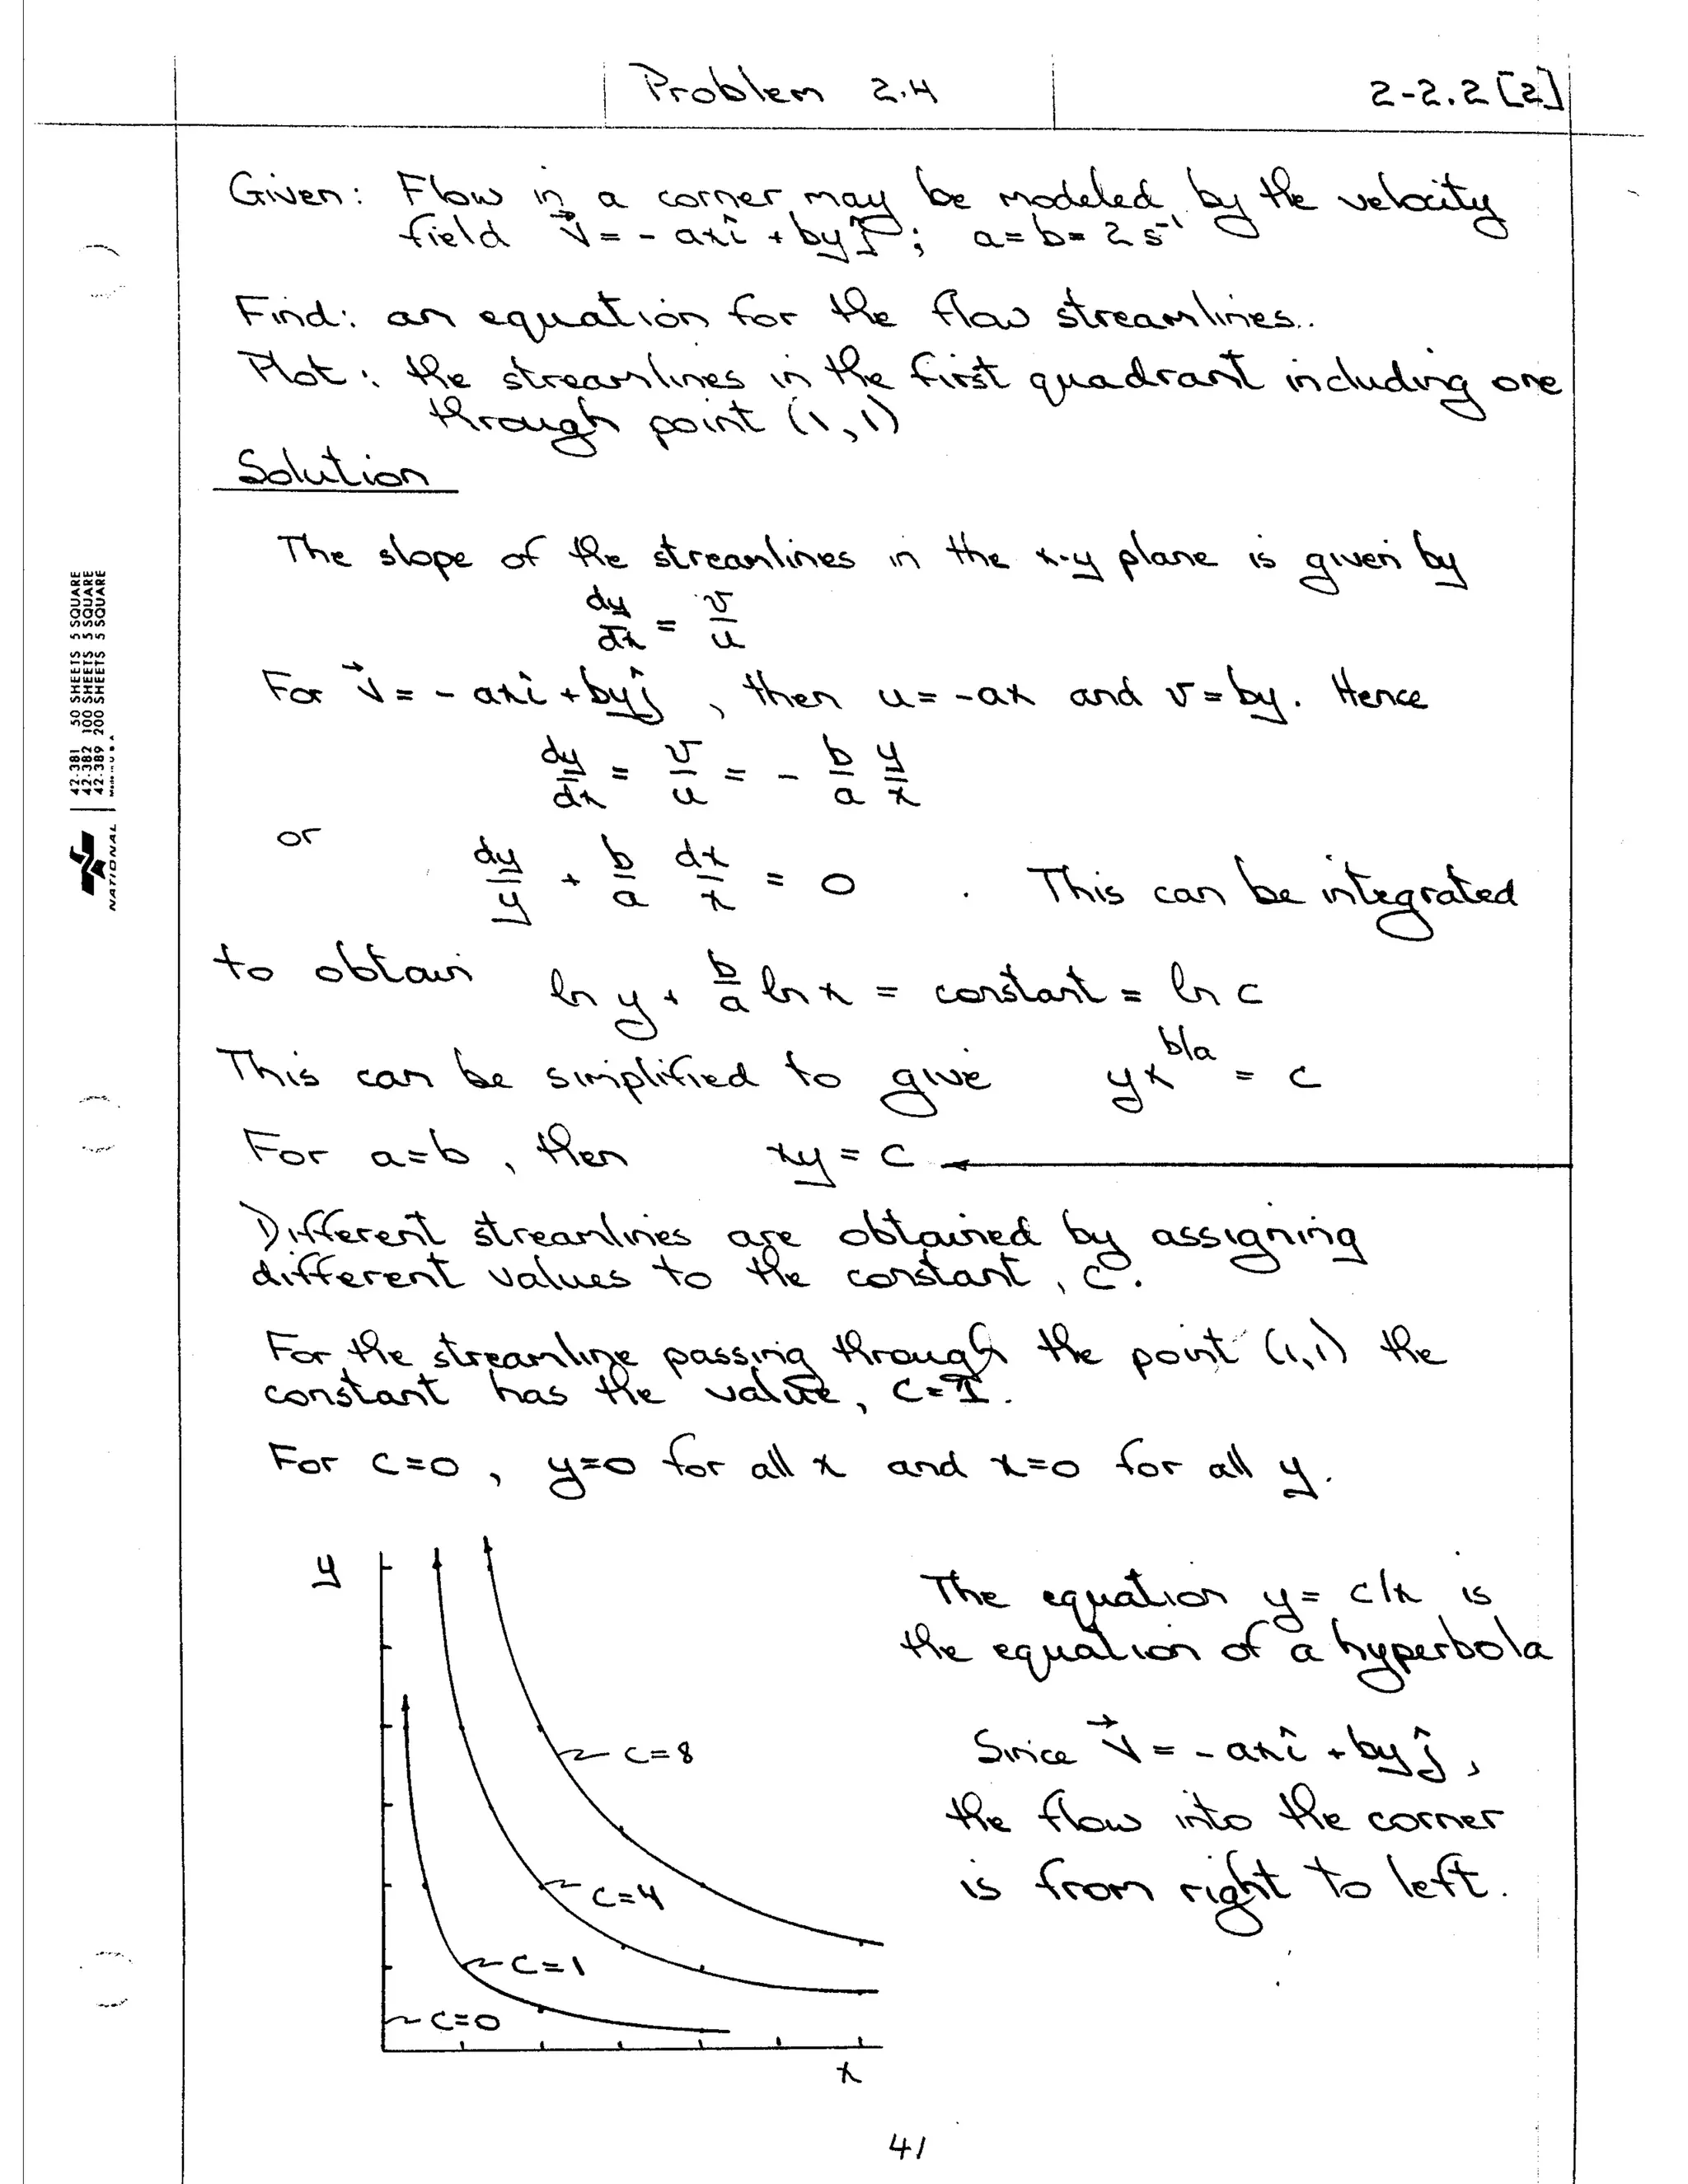 Problem 2.4
2-2.2 [2]
Given: Flow in a corner may be modeled by the velocity
field V⃗ = - axî + byĵ ; a = b = 2 s⁻¹
Find: an equation for the flow streamlines.
Plot: the streamlines in the first quadrant including one
through point (1,1)
Solution
The slope of the streamlines in the x-y plane is given by
dy/dx = v/u
For V⃗ = - axî + byĵ , then u = -ax and v = by. Hence
dy/dx = v/u = - b/a y/x
or dy/y + b/a dx/x = 0 . This can be integrated
to obtain ln y + b/a ln x = constant = ln c
This can be simplified to give yx^b/a = c
For a=b , then xy = c
Different streamlines are obtained by assigning
different values to the constant, c.
For the streamline passing through the point (1,1) the
constant has the value, c=1.
For c=0 , y=0 for all x and x=0 for all y.
y
The equation y= c/x is
the equation of a hyperbola
Since V⃗ = - axî + byĵ ,
the flow into the corner
is from right to left.
c=8
c=4
c=1
c=0
x
41
42-381 50 SHEETS 5 SQUARE
42-382 100 SHEETS 5 SQUARE
42-389 200 SHEETS 5 SQUARE
Made in U S A
NATIONAL